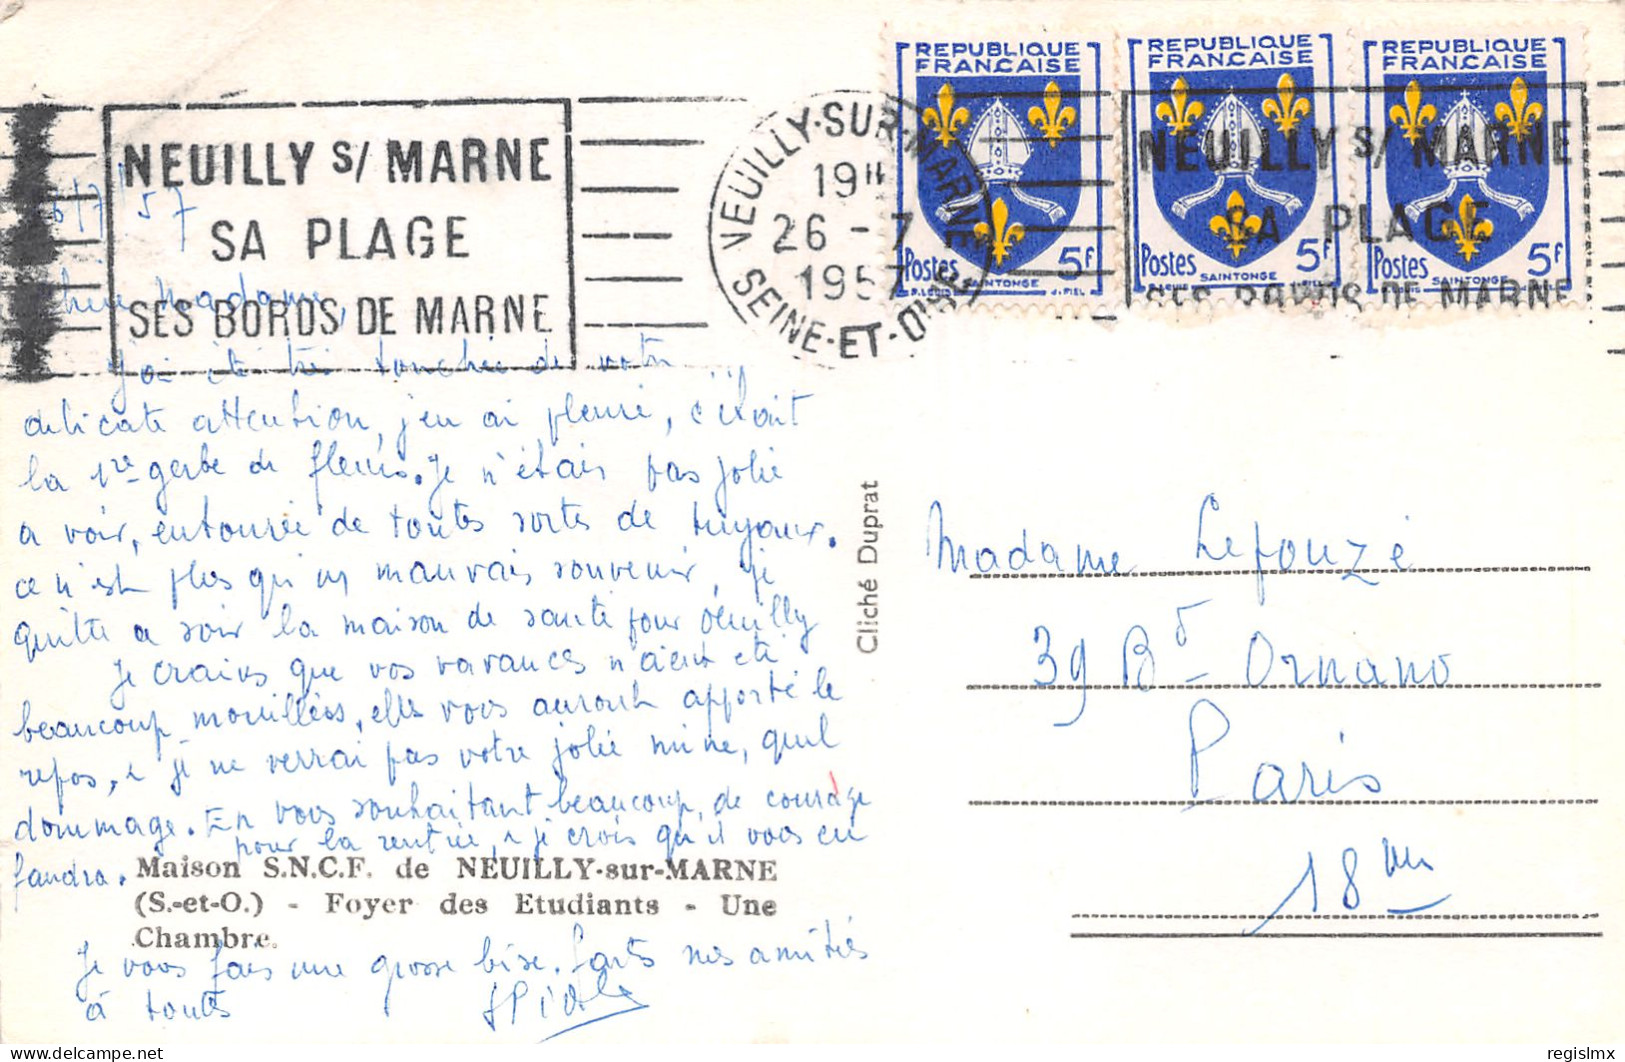 NEUILLY S/ MARNE
SA PLAGE
SES BORDS DE MARNE
NEUILLY-SUR-MARNE
19H
26 - 7
1957
SEINE-ET-OISE
REPUBLIQUE
FRANÇAISE
Postes 5F
SAINTONGE
R.LOUIS J.PIEL
REPUBLIQUE
FRANÇAISE
Postes 5F
SAINTONGE
REPUBLIQUE
FRANÇAISE
Postes 5F
SAINTONGE
J.PIEL
NEUILLY S/ MARNE
SA PLAGE
SES BORDS DE MARNE
26/7/57
Chère Madame,
J'ai été très touchée de votre
délicate attention, j'en ai pleuré, c'était
la 1re gerbe de fleurs. Je n'étais pas jolie
a voir, entourée de toutes sortes de tuyaux.
ce n'est plus qu'un mauvais souvenir, je
quitte ce soir la maison de santé pour Neuilly
Je crains que vos vacances n'aient été
beaucoup mouillées, elles vous auront apporté le
repos, et je ne verrai pas votre jolie mine, quel
dommage. En vous souhaitant beaucoup de courage
pour la rentrée, et je crois qu'il vous en
faudra.
Maison S.N.C.F. de NEUILLY-sur-MARNE
(S.-et-O.) - Foyer des Etudiants - Une
Chambre.
Je vous fais une grosse bise. Toutes mes amitiés
à toutes
Cliché Duprat
Madame Lefouzé
39 Bd Ornano
Paris
18me
delcampe.net
regislmx